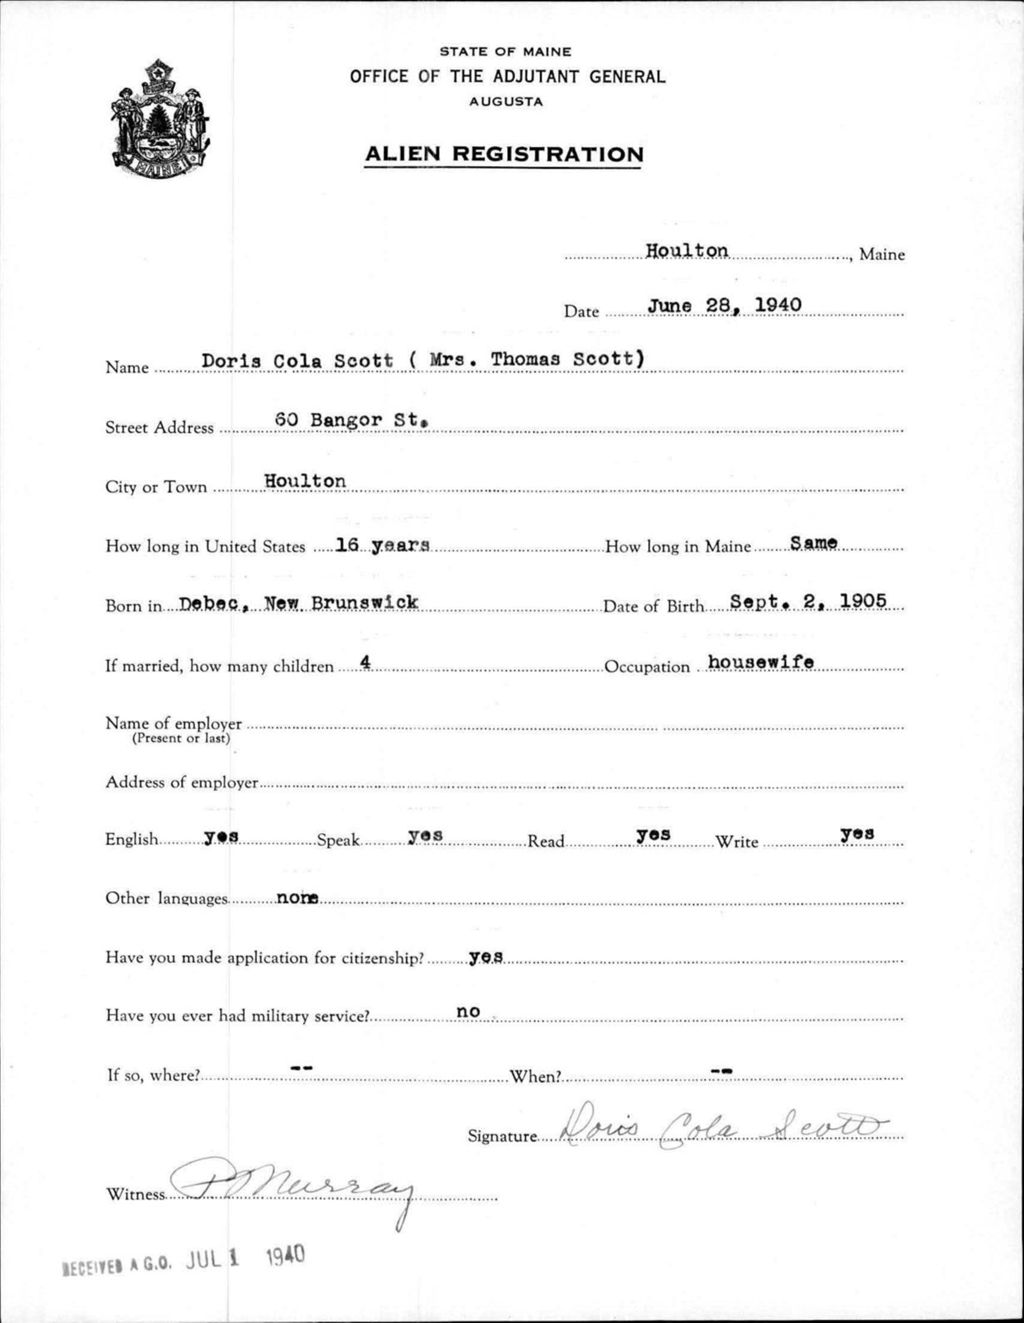 STATE OF MAINE
OFFICE OF THE ADJUTANT GENERAL
AUGUSTA
ALIEN REGISTRATION
MAINE
Houlton, Maine
Date June 28, 1940
Name Doris Cola Scott ( Mrs. Thomas Scott)
Street Address 60 Bangor St.
City or Town Houlton
How long in United States 16 years How long in Maine Same
Born in Debec, New Brunswick Date of Birth Sept. 2, 1905
If married, how many children 4 Occupation housewife
Name of employer
(Present or last)
Address of employer
English yes Speak yes Read yes Write yes
Other languages none
Have you made application for citizenship? yes
Have you ever had military service? no
If so, where? -- When? --
Signature Doris Cola Scott
Witness P Murray
RECEIVED A.G.O. JUL 1 1940